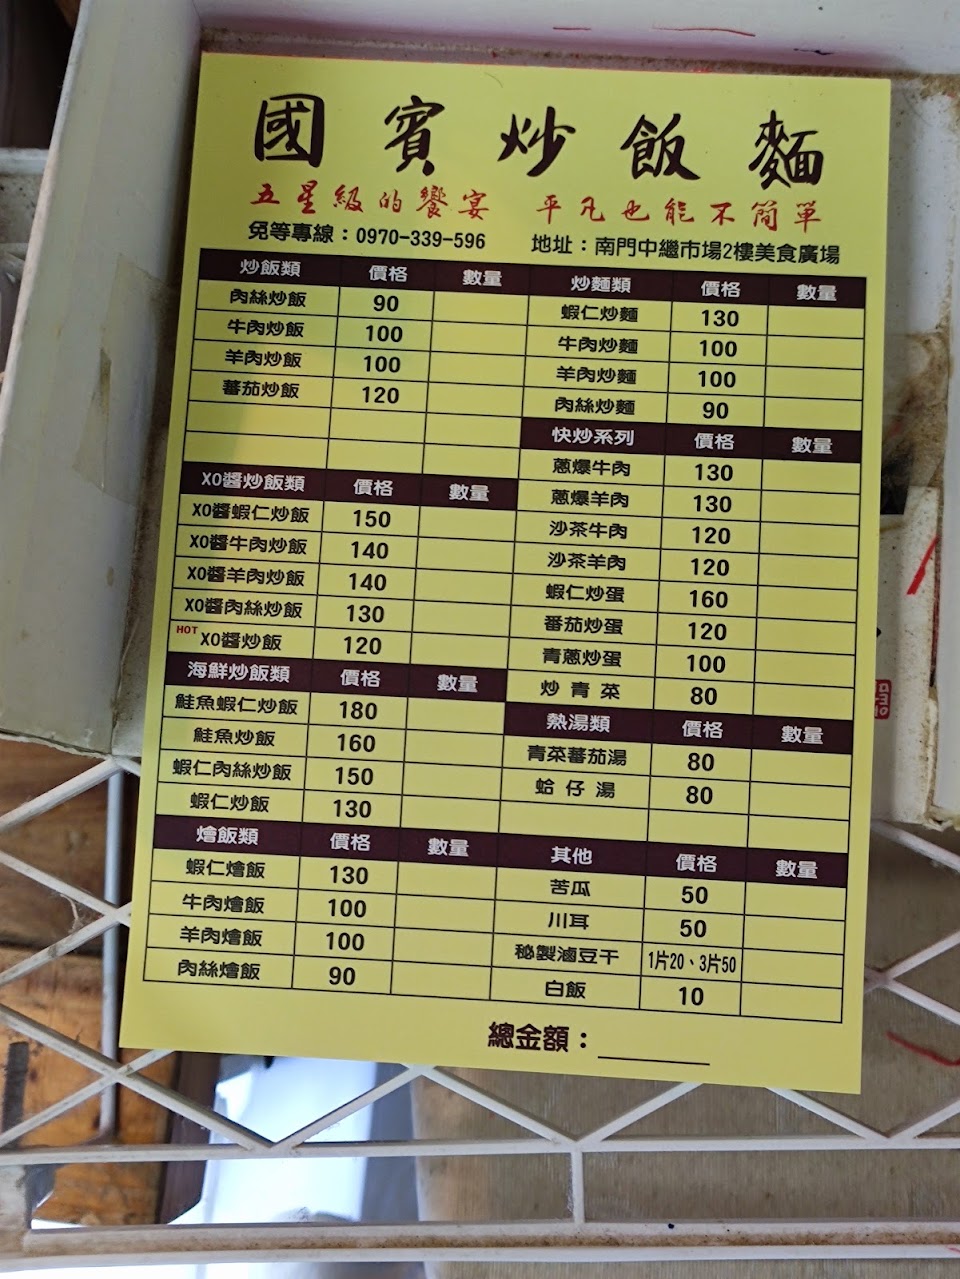 國賓炒飯麵
五星級的饗宴 平凡也能不簡單
免等專線：0970-339-596 地址：南門中繼市場2樓美食廣場
炒飯類 價格 數量
肉絲炒飯 90
牛肉炒飯 100
羊肉炒飯 100
蕃茄炒飯 120
XO醬炒飯類 價格 數量
XO醬蝦仁炒飯 150
XO醬牛肉炒飯 140
XO醬羊肉炒飯 140
XO醬肉絲炒飯 130
HOT XO醬炒飯 120
海鮮炒飯類 價格 數量
鮭魚蝦仁炒飯 180
鮭魚炒飯 160
蝦仁肉絲炒飯 150
蝦仁炒飯 130
燴飯類 價格 數量
蝦仁燴飯 130
牛肉燴飯 100
羊肉燴飯 100
肉絲燴飯 90
炒麵類 價格 數量
蝦仁炒麵 130
牛肉炒麵 100
羊肉炒麵 100
肉絲炒麵 90
快炒系列 價格 數量
蔥爆牛肉 130
蔥爆羊肉 130
沙茶牛肉 120
沙茶羊肉 120
蝦仁炒蛋 160
番茄炒蛋 120
青蔥炒蛋 100
炒青菜 80
熱湯類 價格 數量
青菜蕃茄湯 80
蛤仔湯 80
其他 價格 數量
苦瓜 50
川耳 50
秘製滷豆干 1片20、3片50
白飯 10
總金額：